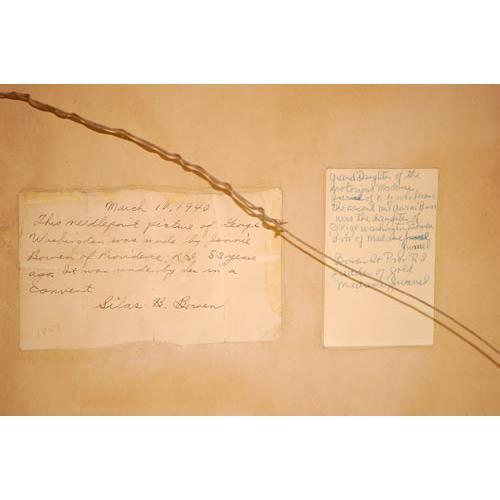 March 10, 1940
This needlepoint picture of George
Washington was made by Jennie
Bowen of Providence, R.I., 83 years
ago. It was made by her in a
Convent
Silas B. Bowen
1857
Grand Daughter of the
notorious Madame
Jumel of N.Y. who became
the second Mrs Aaron Burr
was the daughter of
George Washington Bowen
Son of Madame
Jumel
Bowen St Prov R.I
of Gold
Madame Jumel